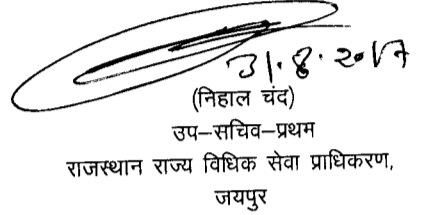 31.8.2017
(निहाल चंद)
उप–सचिव–प्रथम
राजस्थान राज्य विधिक सेवा प्राधिकरण,
जयपुर